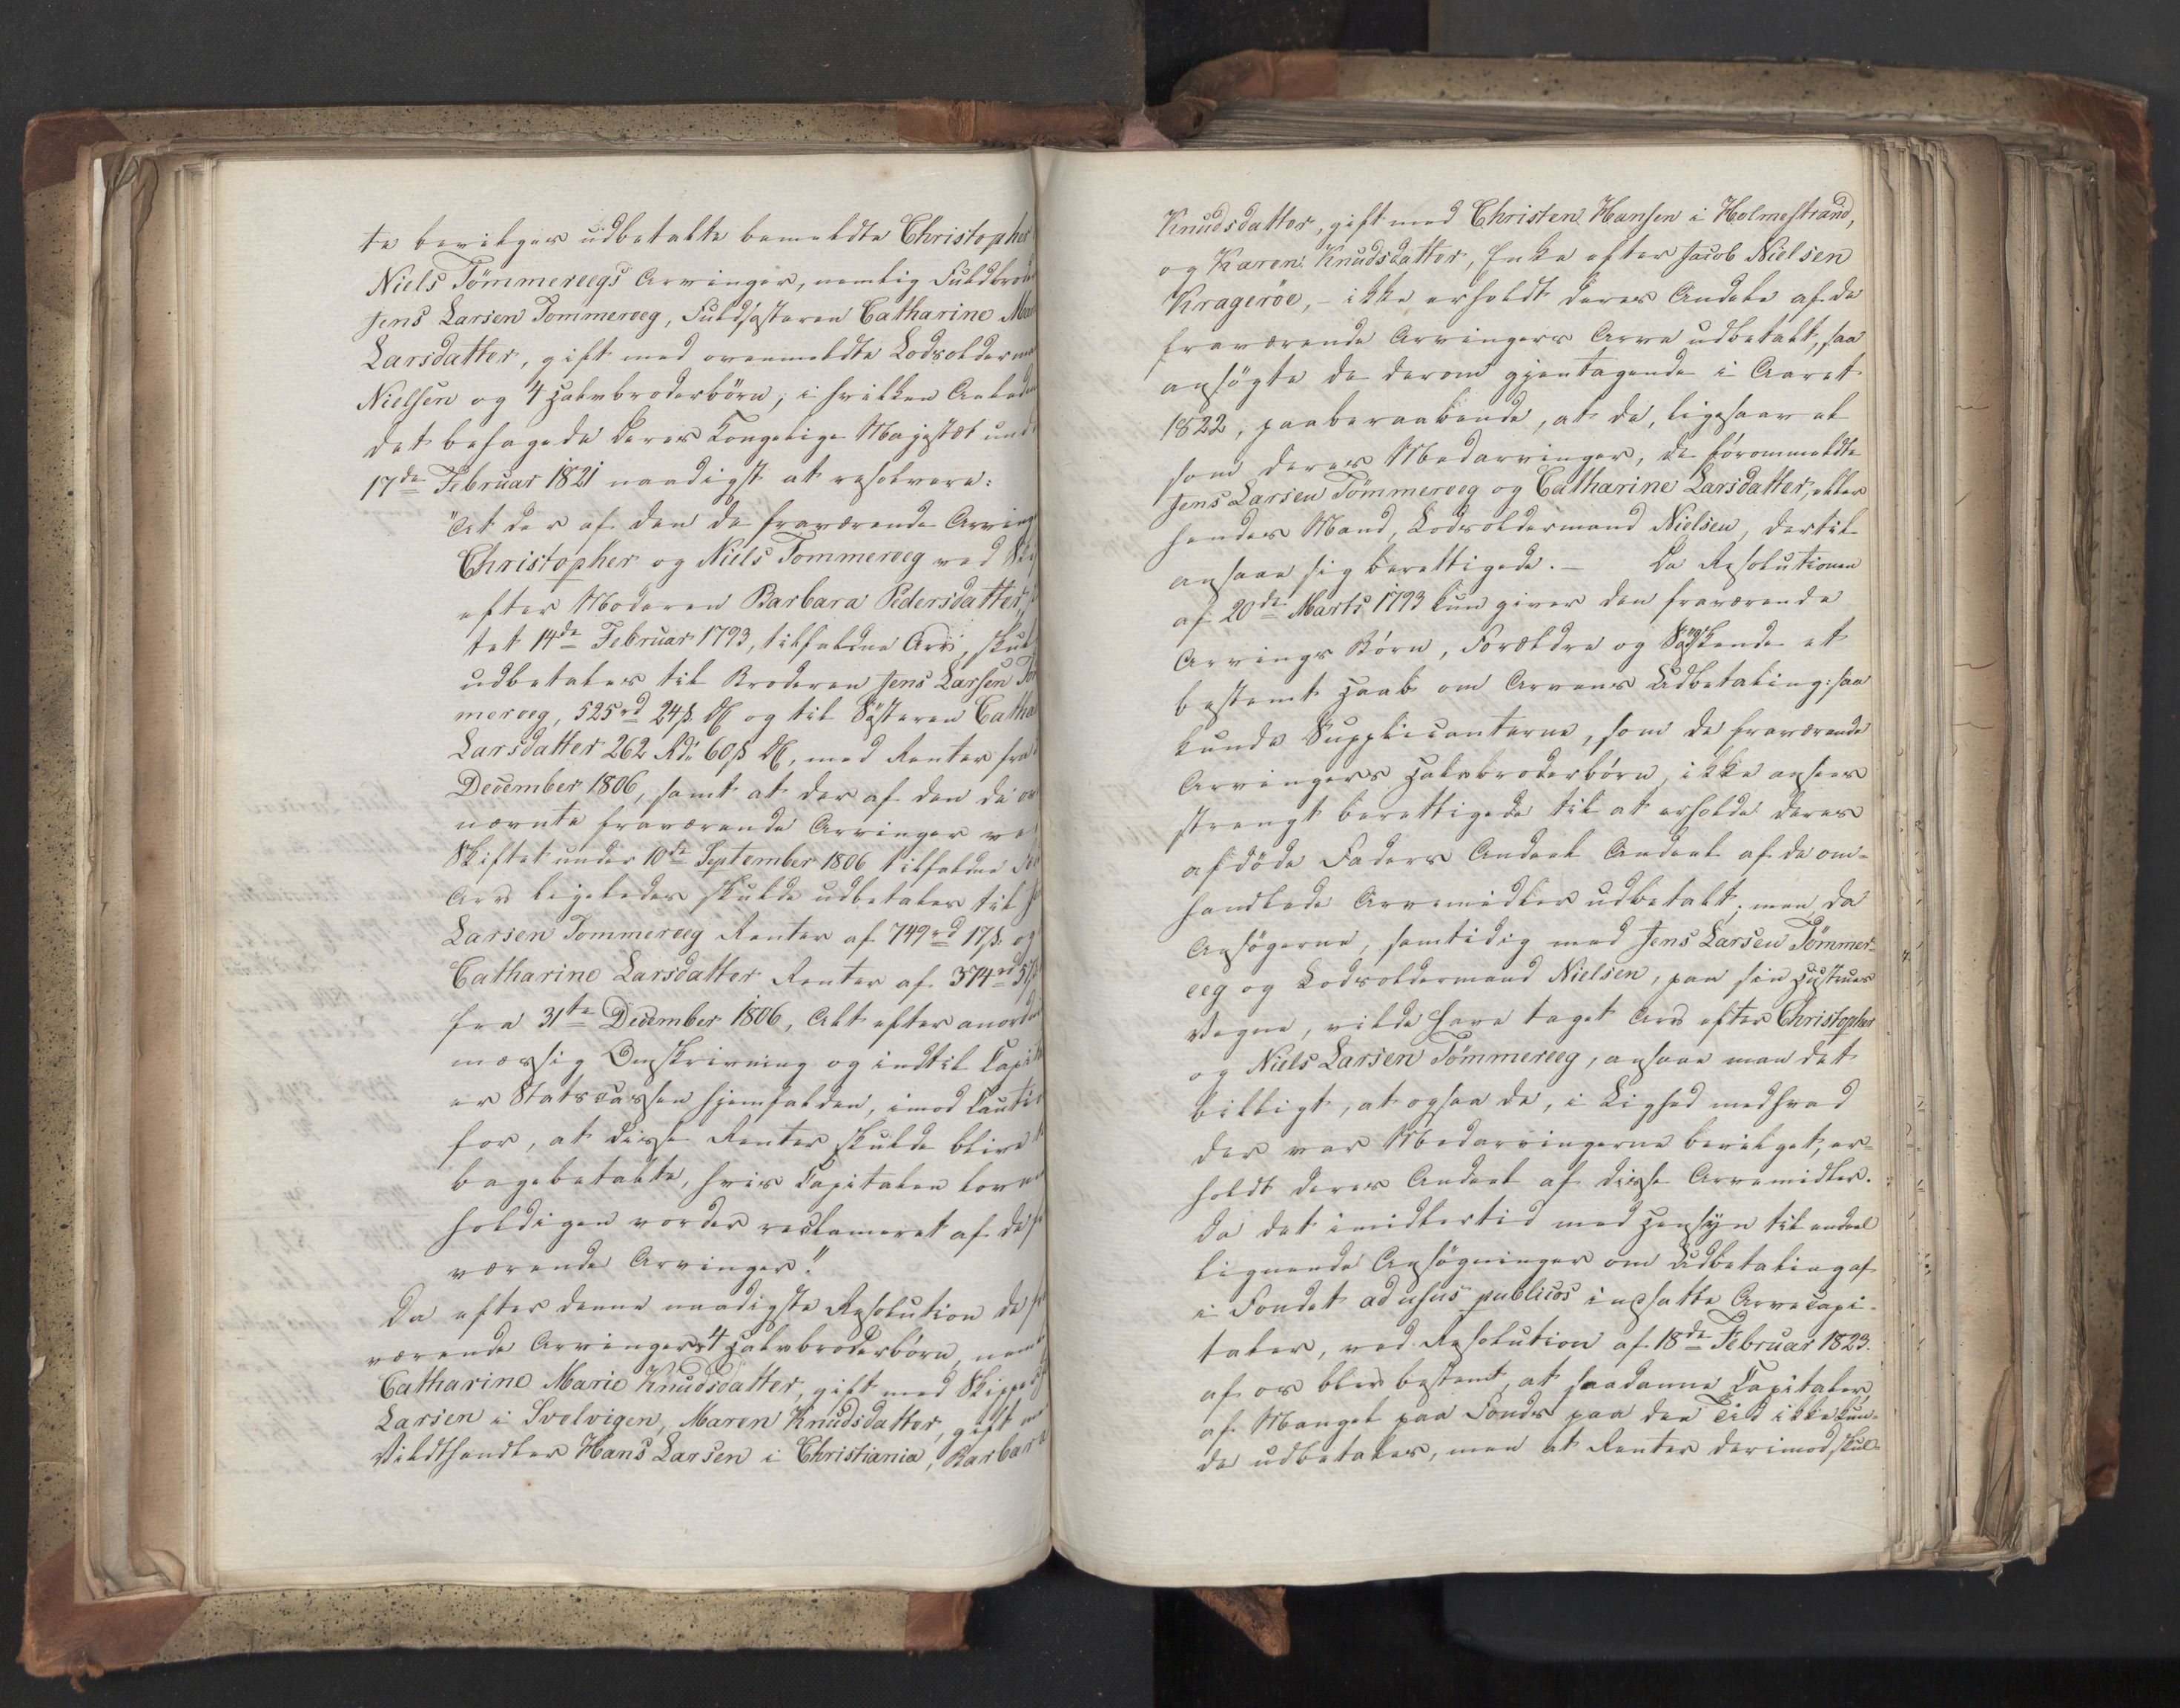 te bevilges udbetalte bemeldte Christopher
Niels Tömmereegs Arvinger, nemlig Fuldbrode
Jens Larsen Tommereeg, Fuldsøsteren Catharine Ma
Larsdatter, gift med ovenmeldte Lodsolderma
Nielsen og 4 Halvbroderbörn; i hvilken Anled
det behagede Deres Kongelige Majestæt und
17de Februar 1821 naadigst at resolvere:
"At der af den de fraværende Arving
Christopher og Niels Tommereeg ved Ski
efter Moderen Barbara Pedersdatter,
tet 14de Februar 1793, tilfaldne Arv, skul
udbetales til Broderen Jens Larsen Tö
mereeg, 525rd 24ß. DC og til Søsteren Catha
Larsdatter 262 Rd. 60ß DC, med Renter fra
December 1806, samt at der af den de ov
nævnte fraværende Arvinger ve
Skiftet under 10de September 1806 tilfaldne
Arv ligeledes skulde udbetales til
Larsen Tommereeg Renter af 749rd 17ß. og
Catharine Larsdatter Renter af 374rd
fra 31te December 1806, Alt efter anord
mæssig Omskrivning og indtil Capit
er Statscassen hjemfalden, imod Cauti
for, at disse Renter skulde blive t
bagebetalte, hvis Capitalen lovme
holdigen vorder reclameret af de f
værende Arvinger."
Da efter denne naadigste Resolution de f
værende Arvingers 4 Halvbroderbörn, neml
Catharine Marie Knudsdatter, gift med Skippe
Larsen i Svelvigen, Maren Knudsdatter, gift me
Vildthandler Hans Larsen i Christiania, Barbara
Knudsdatter, gift med Christen Hansen i Holmestrand,
og Karen Knudsdatter, Enke efter Jacob Nielsen
Krageröe, – ikke erholdt deres Andele af de
fraværende Arvingers Arve udbetalt, saa
ansögte de derom gjentagende i Aaret
1822, paaberaabende, at de, ligesaavel
som deres Medarvinger, de förommeldte
Jens Larsen Tömmereeg og Catharine Larsdatter, eller
hendes Mand, Lodsoldermand Nielsen, dertil
ansaae sig berettigede. – Da Resolutionen
af 20de Marts 1793 kun giver den fraværende
Arvings Börn, Forældre og Södskende et
bestemt Haab om Arvens Udbetaling: saa
kunde Supplicanterne, som de fraværende
Arvingers Halvbroderbörn, ikke ansees
strengt berettigede til at erholde deres
afdöde Faders Andeel Andeel af de om-
handlede Arvemidler udbetalt; men da
Ansögerne, samtidig med Jens Larsen Tömmer-
eeg og Lodsoldermand Nielsen, paa sin Hustrues
Vegne, vilde have taget Arv efter Christopher
og Niels Larsen Tömmereeg, ansaae man det
billigt, at ogsaa de, i Lighed med hvad
der var Medarvingerne bevilget, er-
holdt deres Andeel af disse Arvemidler.
Da det imidlertid med Hensyn til endeel
lignende Ansögninger om Udbetaling af
i Fondet ad usus publicos indsatte Arvecapi-
taler, ved Resolution af 18de Februar 1823.
af os blev bestemt, at saadanne Capitaler,
af Mangel paa Fonds paa den Tid ikke kun-
de udbetales, men at Renter derimod skul-